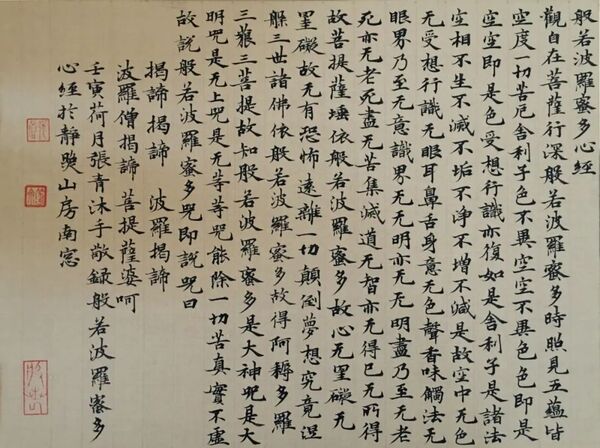 般若波羅蜜多心經
觀自在菩薩行深般若波羅蜜多時照見五蘊皆
空度一切苦厄舍利子色不異空空不異色色即是
空空即是色受想行識亦復如是舍利子是諸法
空相不生不滅不垢不淨不增不減是故空中无色
无受想行識无眼耳鼻舌身意无色聲香味觸法无
眼界乃至无意識界无无明亦无无明盡乃至无老
死亦无老死盡无苦集滅道无智亦无得已无所得
故菩提薩埵依般若波羅蜜多故心无罣礙无
罣礙故无有恐怖遠離一切顛倒夢想究竟涅
槃三世諸佛依般若波羅蜜多故得阿耨多羅
三藐三菩提故知般若波羅蜜多是大神咒是大
明咒是无上咒是无等等咒能除一切苦真實不虛
故說般若波羅蜜多咒即說咒曰
揭諦揭諦 波羅揭諦
波羅僧揭諦 菩提薩婆呵
壬寅荷月張青沐手敬録般若波羅蜜多
心經於靜山房南窓